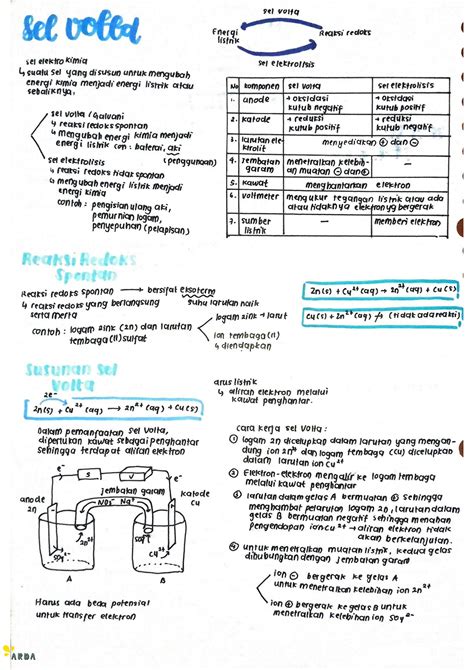 sel volta
sel volta
Energi listrik
Reaksi redoks
sel elektrolisis
sel elektrokimia
↳ suatu sel yang disusun untuk mengubah
energi kimia menjadi energi listrik atau
sebaliknya.
sel volta / Galvani
↳ reaksi redoks spontan
↳ mengubah energi kimia menjadi
energi listrik con : baterai, aki
(penggunaan)
sel elektrolisis
↳ reaksi redoks tidak spontan
↳ mengubah energi listrik menjadi
energi kimia
contoh : pengisian ulang aki,
pemurnian logam,
penyepuhan (pelapisan)
No komponen sel volta sel elektrolisis
1. anode → oksidasi → oksidasi
kutub negatif kutub positif
2. katode → reduksi → reduksi
kutub positif kutub negatif
3. larutan elektrolit menyediakan ⊕ dan ⊖
4. jembatan garam menetralkan kelebihan muatan ⊖ dan ⊕
5. kawat menghantarkan elektron
6. voltmeter mengukur tegangan listrik ada atau
atau tidaknya elektron yg bergerak
7. sumber listrik — memberi elektron
Reaksi Redoks
Spontan
Reaksi redoks spontan → bersifat eksoterm
↳ reaksi redoks yang berlangsung suhu larutan naik
serta merta
contoh : logam zink (zn) dan larutan
tembaga (II) sulfat
logam zink → larut
ion tembaga (II)
↳ diendapkan
Zn(s) + Cu²⁺(aq) → Zn²⁺(aq) + Cu(s)
Cu(s) + Zn²⁺(aq) ↛ (tidak ada reaksi)
Susunan Sel
Volta
2e⁻
Zn(s) + Cu²⁺(aq) → Zn²⁺(aq) + Cu(s)
Dalam pemanfaatan sel volta,
diperlukan kawat sebagai penghantar
sehingga terdapat aliran elektron
e⁻
S
V
e⁻
jembatan garam
anode
Zn
katode
Cu
NO₃⁻ Na⁺
Zn²⁺
SO₄²⁻
Cu²⁺
SO₄²⁻
A
B
Harus ada beda potensial
untuk transfer elektron
arus listrik
↳ aliran elektron melalui
kawat penghantar.
cara kerja sel volta :
① logam zn dicelupkan dalam larutan yang mengan-
dung ion zn²⁺ dan logam tembaga (cu) dicelupkan
dalam larutan ion Cu²⁺
② Elektron-elektron mengalir ke logam tembaga
melalui kawat penghantar
③ larutan dalam gelas A bermuatan ⊕ sehingga
menghambat pelarutan logam zn, larutan dalam
gelas B bermuatan negatif sehingga menahan
pengendapan ion Cu²⁺ → aliran elektron tidak
akan berkelanjutan.
④ untuk menetralkan muatan listrik, kedua gelas
dihubungkan dengan jembatan garam
ion ⊖ bergerak ke gelas A
untuk menetralkan kelebihan ion zn²⁺
ion ⊕ bergerak ke gelas B untuk
menetralkan kelebihan ion SO₄²⁻
ARDA